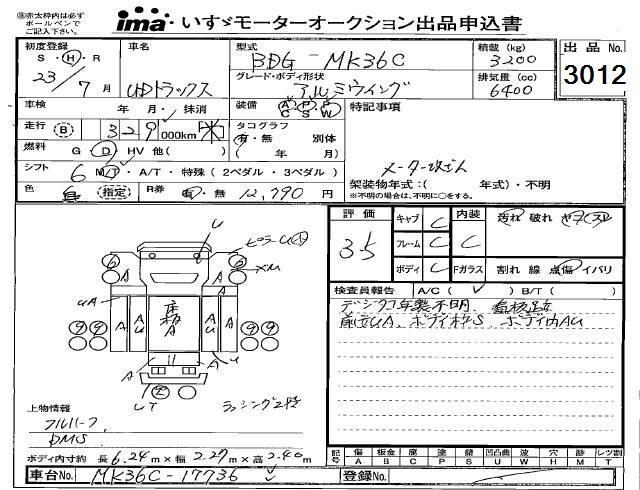 ※赤太枠内は必ず
ボールペンで
ご記入下さい。
ima いすゞモーターオークション出品申込書
初度登録
S・H・R
23年7月
車名
UDトラックス
型式
BDG-MK36C
積載(kg)
3200
出品No.
3012
グレード・ボディ形状
アルミウィング
排気量(cc)
6400
車検
年 月・抹消
装備
A C
P S
P W
特記事項
走行(B)
329,000km(※)
タコグラフ
有・無 別体
( 年 月)
燃料
G・D・HV 他( )
メーター改ざん
シフト
6 M/T・A/T・特殊(2ペダル・3ペダル)
架装物年式:( 年式)・不明
※不明の場合は、不明に○をする。
色
(指定)
R券
有・無 12,790円
評価
3.5
キャブ C
フレーム C
ボディ C
内装
C
Fガラス
汚れ 破れ ヤブレ
割れ 線 点傷 イバリ
検査員報告
A/C( ) B/T( )
デジタコ年製不明、
前立UA、ボディ枠S、ボディ内AU
U
ピラーU
XM
6
6
A
A
UA
A
AU
床板A
A
AU
A
9
9
9
9
U
A
A
UT
ラッシング2段
上物情報
フルハーフ
DMS
ボディ内寸約 長6.24m×幅2.27m×高2.40m
記号
傷 A
板金 B
腐 C
塗 P
錆 S
凹凸曲 U
波 W
穴 H
杯 M
レツ割 T
車台No.
MK36C-17736
登録No.